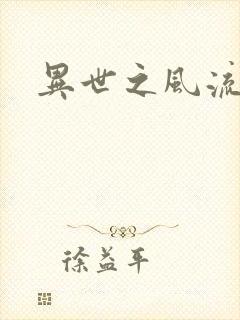 異世之風流
徐益平